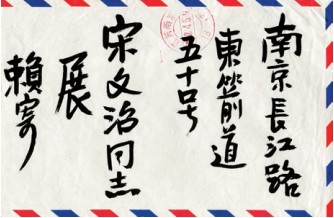 南京長江路
東箭道
五十号
宋文治同志
展
賴寄